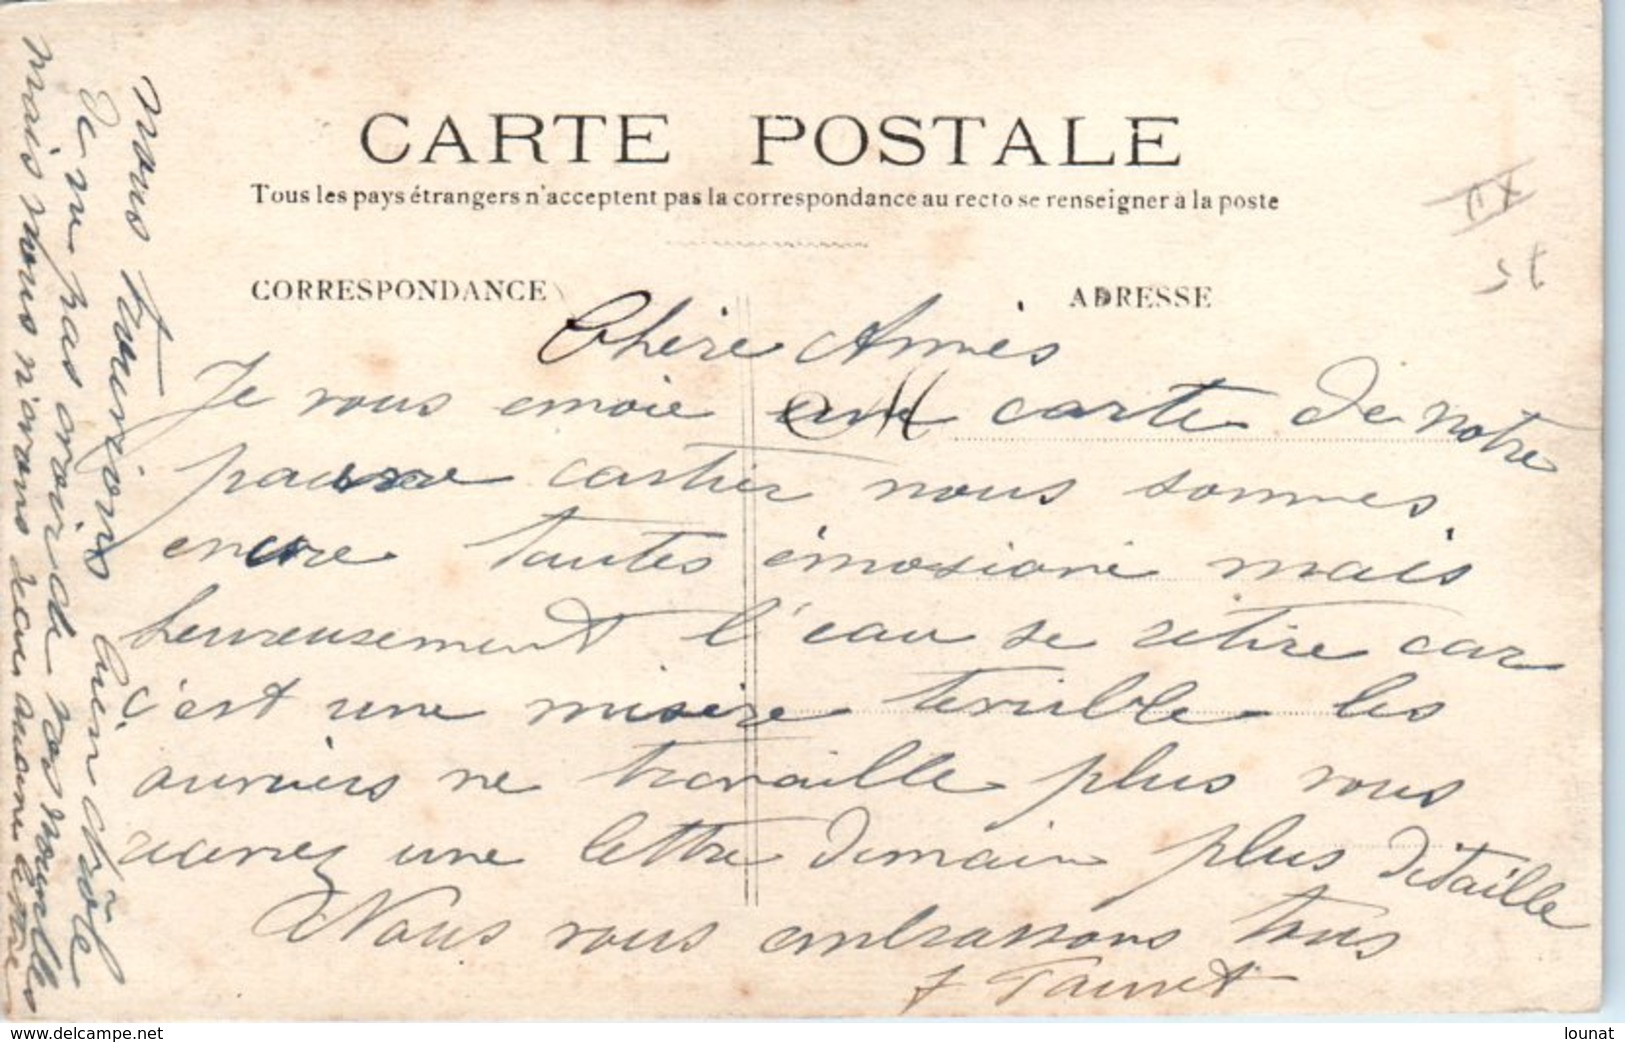 CARTE POSTALE
Tous les pays étrangers n'acceptent pas la correspondance au recto se renseigner à la poste
CORRESPONDANCE
ADRESSE
st
Chère Amies
Je vous envoie une carte de notre
pauvre cartier nous sommes
encore toutes émosioné mais
heureusement l'eau se retire car
c'est une misère terrible les
ouvriers ne travaille plus vous
aurez une lettre demain plus ditaille
Nous vous embrassons tous
nous trouvions bien drôle
de nu pas avoir de vos nouvelles
mais nous n'avons recu aucune lettre
www.delcampe.net
lounat